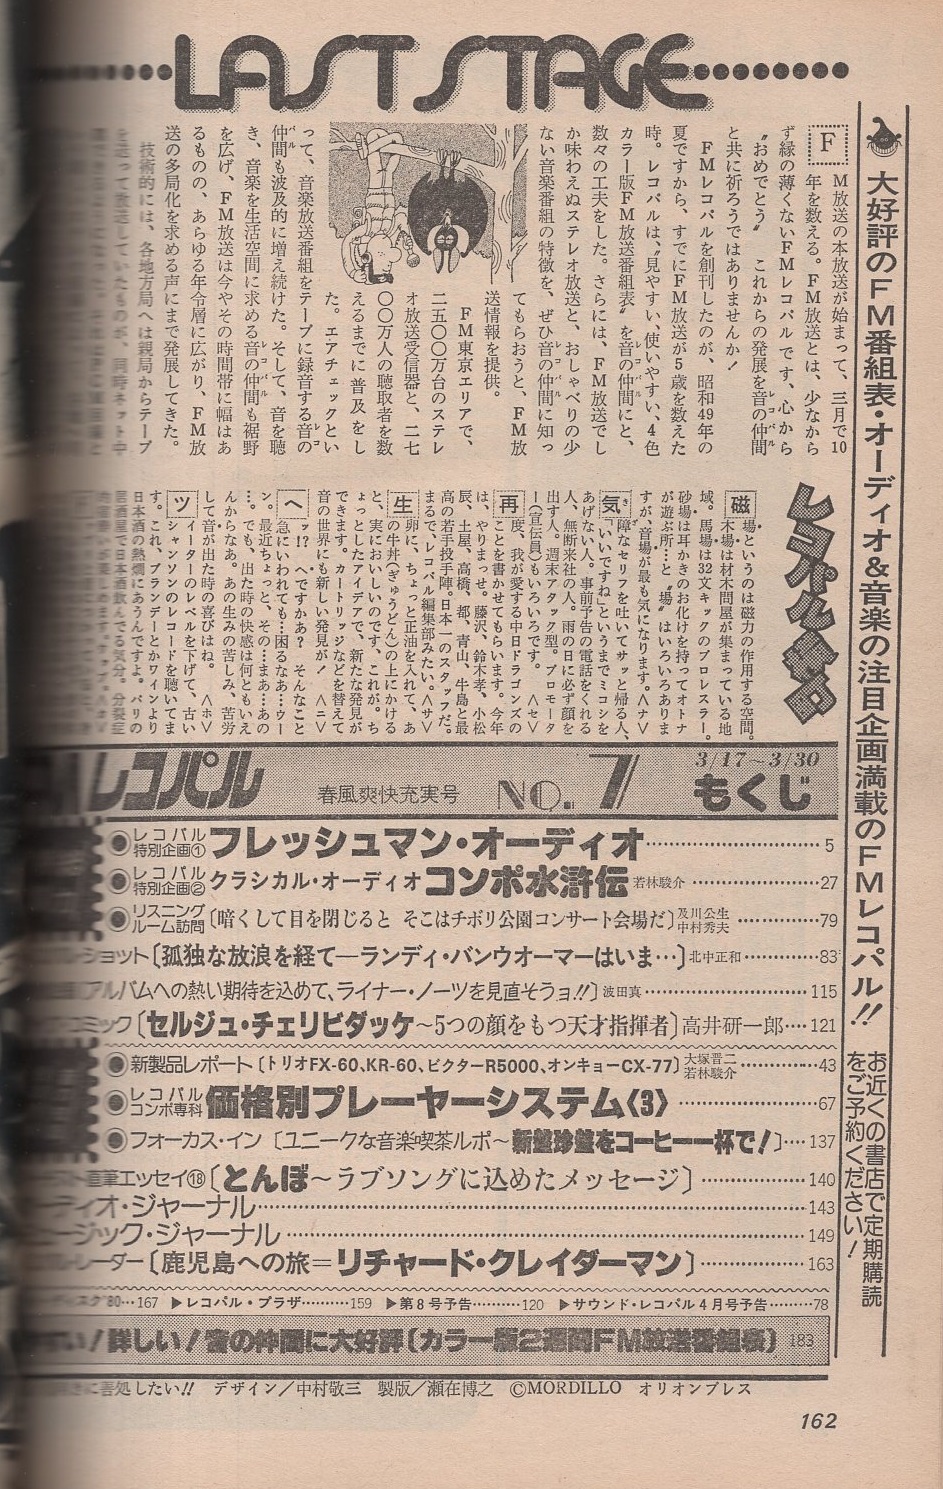 LAST STAGE
大好評のFM番組表・オーディオ&音楽の注目企画満載のFMレコパル!!
お近くの書店で定期購読
をご予約ください!
FM放送の本放送が始まって、三月で10
年を数える。FM放送とは、少なから
ず縁の薄くないFMレコパルです、心から
“おめでとう” これからの発展を音の仲間
と共に祈ろうではありませんか!
FMレコパルを創刊したのが、昭和49年の
夏ですから、すでにFM放送が5歳を数えた
時。レコパルは、“見やすい、使いやすい、4色
カラー版FM放送番組表”を音の仲間にと、
数々の工夫をした。さらには、FM放送でし
か味わえぬステレオ放送と、おしゃべりの少
ない音楽番組の特徴を、ぜひ音の仲間に知っ
てもらおうと、FM放
送情報を提供。
FM東京エリアで、
二五〇〇万台のステレ
オ放送受信器と、二七
〇〇万人の聴取者を数
えるまでに普及をし
た。エアチェックとい
って、音楽放送番組をテープに録音する音の
仲間も波及的に増え続けた。そして、音を聴
き、音楽を生活空間に求める音の仲間も裾野
を広げ、FM放送は今やその時間帯に幅はあ
るものの、あらゆる年令層に広がり、FM放
送の多局化を求める声にまで発展してきた。
技術的には、各地方局へは親局からテープ
を送って放送していたものが、同時ネット中
磁場というのは磁力の作用する空間。
木場は材木問屋が集まっている地
域。馬場は32文キックのプロレスラー。
砂場は耳かきのお化けを持ってオトナ
が遊ぶ所…と“場”はいろいろありま
すが、音場が最も気になります。〈ナ〉
気障なセリフを吐いてサッと帰る人、
「いいですね」というまでミコシを
あげない人。事前予告の電話をくれる
人、無断来社の人。雨の日に必ず顔を
出す人。週末アタック型。プロモータ
ー(宣伝員)もいろいろです。〈セ〉
再度、我が愛する中日ドラゴンズの
ことを書かせてもらいます。今年
は、やりまっせ。藤沢、鈴木孝、小松
辰、土屋、高橋、都、青山、牛島と最
高の若手投手陣。日本一のスタッフだ。
まるで、レコパル編集部みたい。〈サ〉
生卵に、ちょっと正油を入れて、あ
の牛丼(ぎゅうどん)の上にかける
と、実においしいのです、これが。ち
ょっとしたアイデアで、新たな発見が
できます。カートリッジなどを替えて
音の世界にも新しい発見が! 〈ニ〉
ヘッ!? へですかあ? そんなこと
急にいわれても…困るなあ…ウー
ン。最近ちょっと、その…まあ…あの
…。でも、出た時の快感は何ともいえ
んからなあ。あの生みの苦しみ、苦労
して音が出た時の喜びはね。〈ホ〉
ツイーターのレベルを下げて、古い
シャンソンのレコードを聴いてま
す。これ、ブランデーとかワインより
日本酒の熱燗にあうんですよ。パリの
居酒屋で日本酒飲んでる気分。分裂症
レコパル
春風爽快充実号
NO.7
3/17〜3/30
もくじ
レコパル特別企画① フレッシュマン・オーディオ 5
レコパル特別企画② クラシカル・オーディオ コンポ水滸伝 若林駿介 27
リスニングルーム訪問 〔暗くして目を閉じると そこはチボリ公園コンサート会場だ〕 及川公生 中村秀夫 79
ショット〔孤独な放浪を経て—ランディ・バンウオーマーはいま…〕 北中正和 83
〔アルバムへの熱い期待を込めて、ライナー・ノーツを見直そうョ!!〕 波田真 115
コミック〔セルジュ・チェリビダッケ〜5つの顔をもつ天才指揮者〕 高井研一郎 121
新製品レポート〔トリオFX-60、KR-60、ビクターR5000、オンキョーCX-77〕 大塚晋二 若林駿介 43
レコパルコンポ専科 価格別プレーヤーシステム〈3〉 67
フォーカス・イン〔ユニークな音楽喫茶ルポ〜新盤珍盤をコーヒー一杯で!〕 137
直筆エッセイ⑱〔とんぼ〜ラブソングに込めたメッセージ〕 140
ーディオ・ジャーナル 143
ュージック・ジャーナル 149
レーダー〔鹿児島への旅=リチャード・クレイダーマン〕 163
'80 167 ▶レコパル・プラザ 159 ▶第8号予告 120 ▶サウンド・レコパル4月号予告 78
い!詳しい!音の仲間に大好評〔カラー版2週間FM放送番組表〕 183
に善処したい!! デザイン/中村敬三 製版/瀬在博之 ©MORDILLO オリオンプレス
162